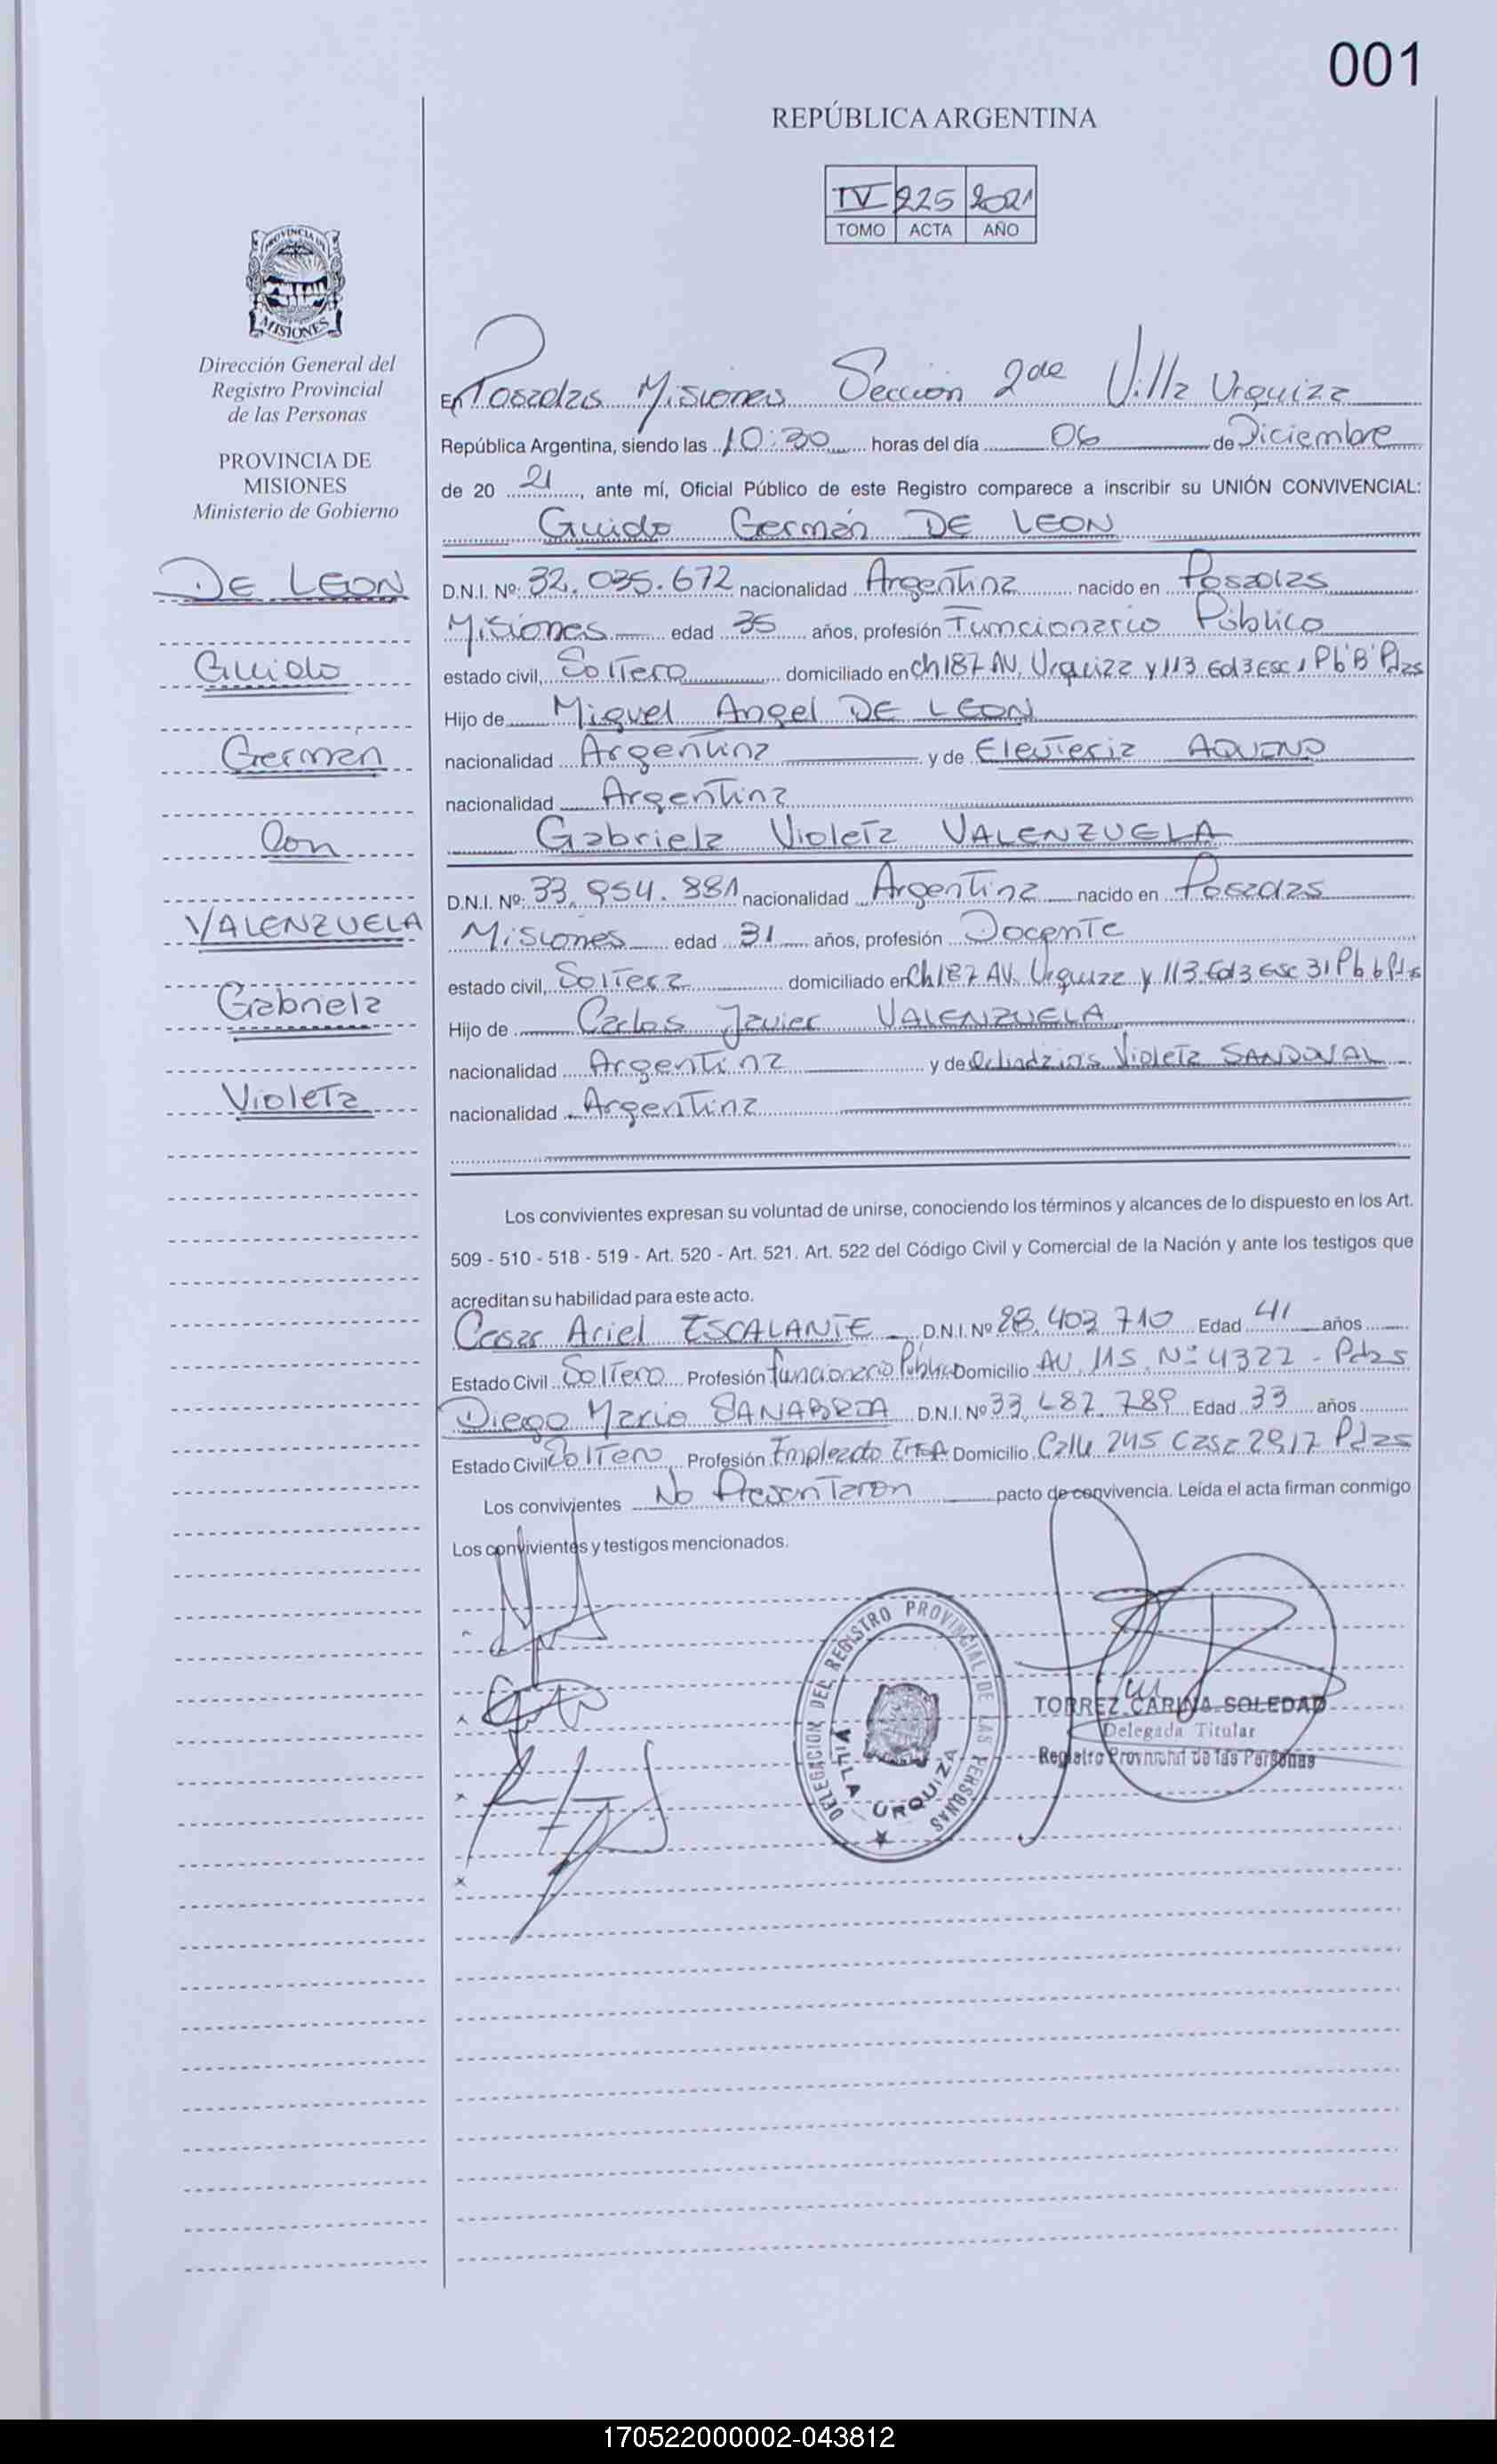 001
REPÚBLICA ARGENTINA
IV 225 2021
TOMO ACTA AÑO
PROVINCIA DE
MISIONES
Dirección General del
Registro Provincial
de las Personas
PROVINCIA DE
MISIONES
Ministerio de Gobierno
DE LEON
Guido
Germán
Con
VALENZUELA
Gabriela
Violeta
En Posadas Misiones Sección 2da Villa Urquiza
República Argentina, siendo las 10:30 horas del día 06 de Diciembre
de 20 21, ante mí, Oficial Público de este Registro comparece a inscribir su UNIÓN CONVIVENCIAL:
Guido Germán DE LEON
D.N.I. Nº: 32.035.672 nacionalidad Argentina nacido en Posadas
Misiones edad 35 años, profesión Funcionario Público
estado civil, Soltero domiciliado en Ch 187 AV. Urquiza y 113 Ed 3 Esc 1 Pb 'B' Pdas
Hijo de Miguel Angel DE LEON
nacionalidad Argentina y de Eleuteria AQUINO
nacionalidad Argentina
Gabriela Violeta VALENZUELA
D.N.I. Nº: 33.954.881 nacionalidad Argentina nacido en Posadas
Misiones edad 31 años, profesión Docente
estado civil, Soltera domiciliado en Ch 187 AV. Urquiza y 113 Ed 3 Esc 31 Pb b Pdas
Hijo de Carlos Javier VALENZUELA
nacionalidad Argentina y de Violeta SANDOVAL
nacionalidad Argentina
Los convivientes expresan su voluntad de unirse, conociendo los términos y alcances de lo dispuesto en los Art.
509 - 510 - 518 - 519 - Art. 520 - Art. 521. Art. 522 del Código Civil y Comercial de la Nación y ante los testigos que
acreditan su habilidad para este acto.
Cesar Ariel ESCALANTE D.N.I. Nº 28.403.710 Edad 41 años
Estado Civil Soltero Profesión funcionario Público Domicilio AV. 115 Nº 4322 - Pdas
Diego Mario SANABRIA D.N.I. Nº 33.487.789 Edad 33 años
Estado Civil Soltero Profesión Empleado Domicilio Calle 245 Casa 2917 Pdas
Los convivientes No Presentaron pacto de convivencia. Leída el acta firman conmigo
Los convivientes y testigos mencionados.
DELEGACION DEL REGISTRO PROVINCIAL DE LAS PERSONAS
VILLA URQUIZA
TORREZ CARINA SOLEDAD
Delegada Titular
Registro Provincial de las Personas
170522000002-043812